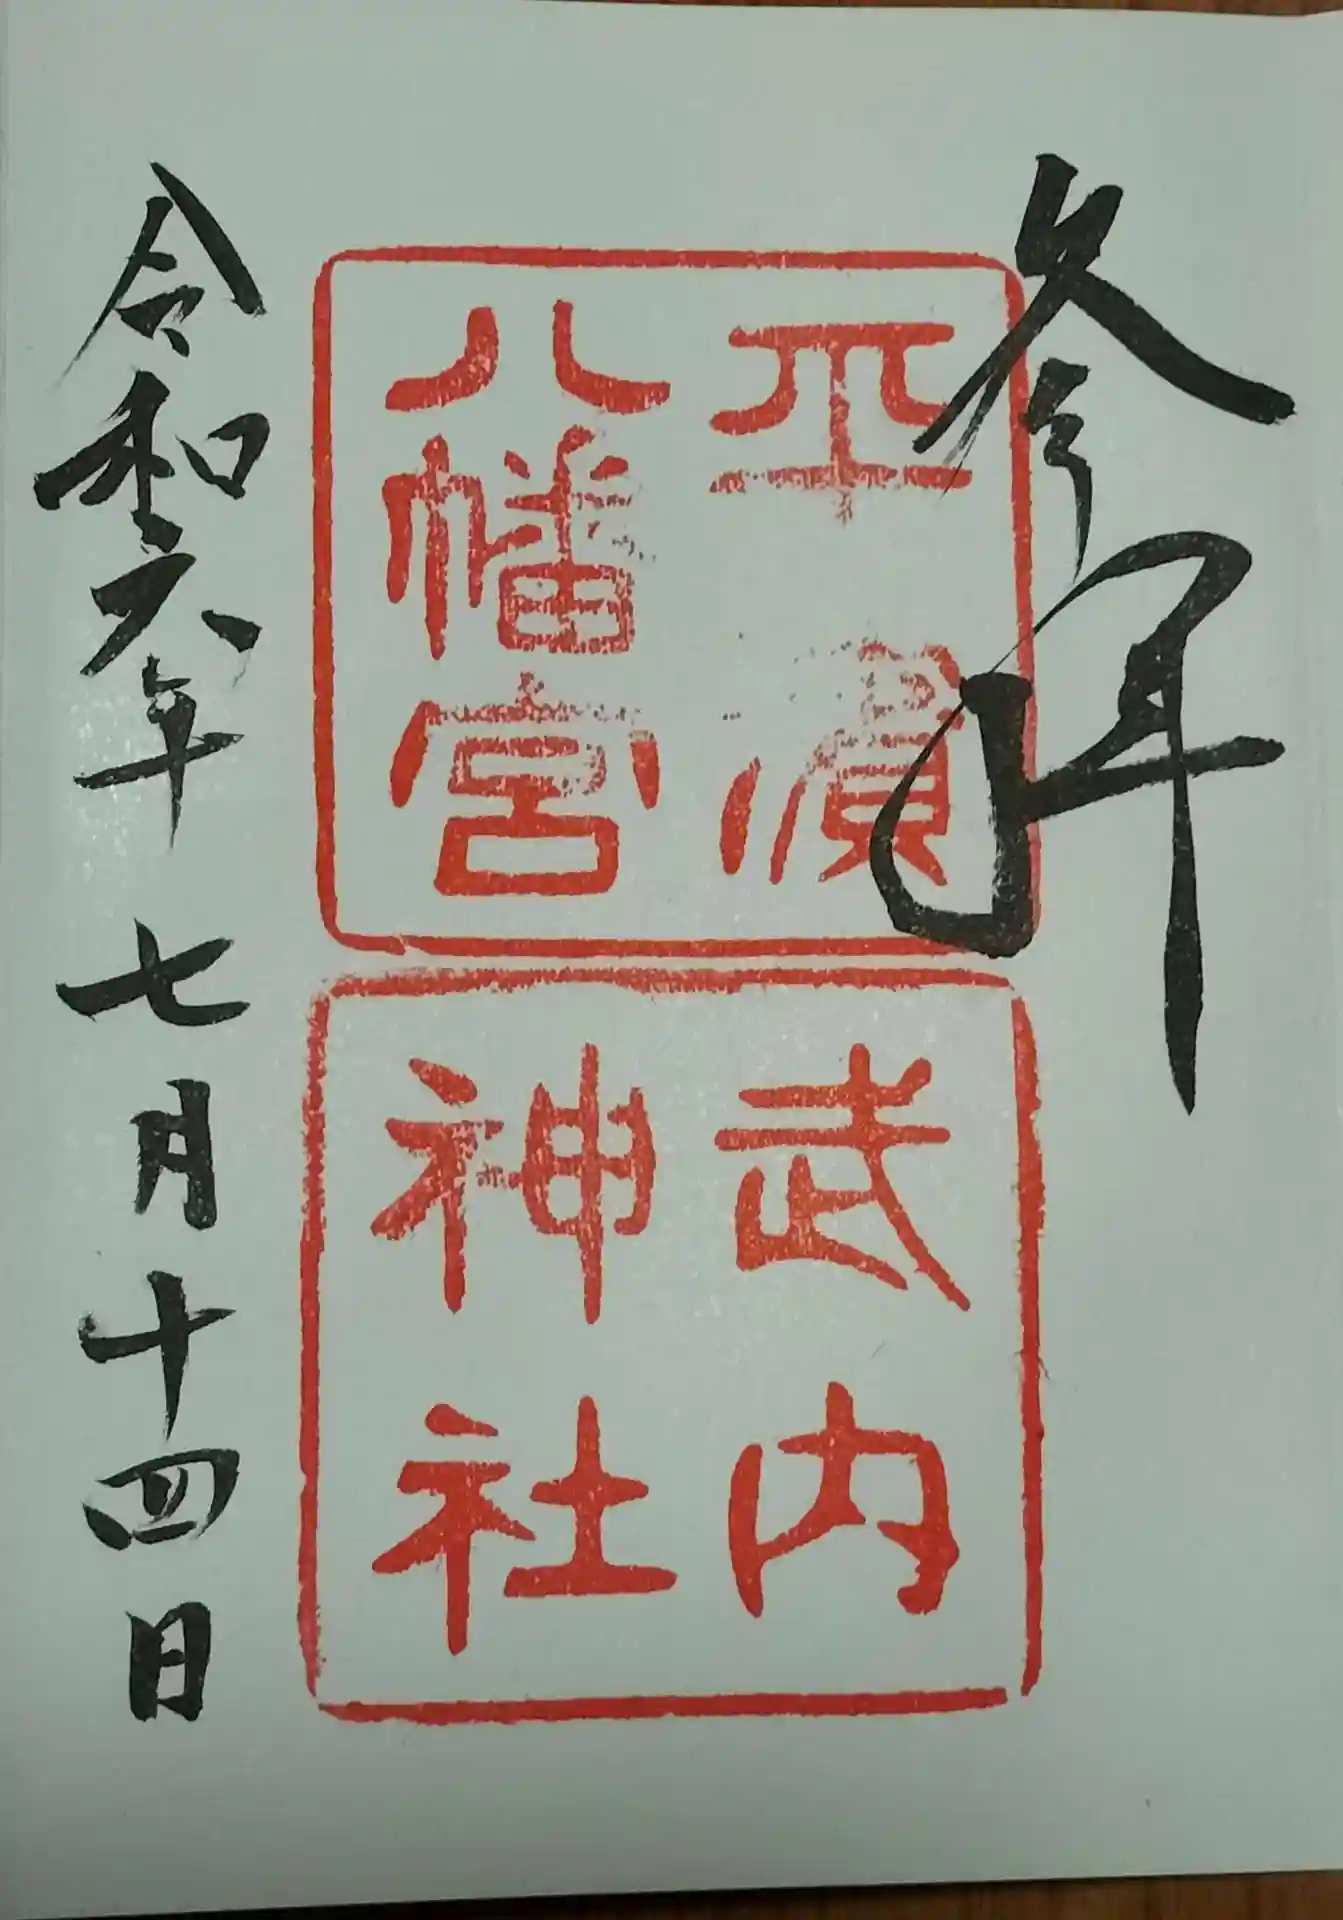 参拝
平濱
八幡宮
武内
神社
令和六年七月十四日